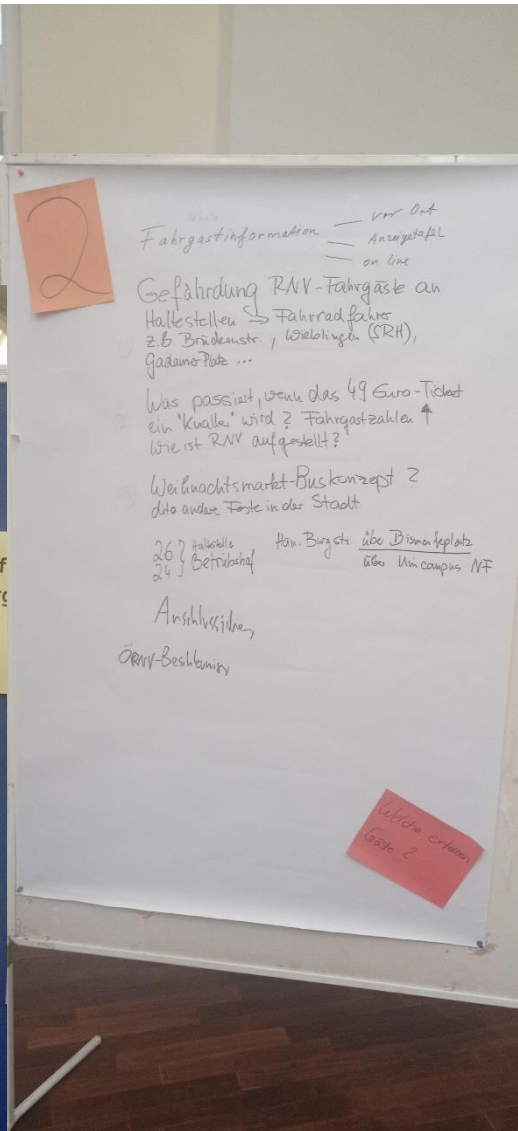 2
Fahrgastinformation — vor Ort
— Anzeigetafel
— on line
Gefährdung RNV-Fahrgäste an
Haltestellen → Fahrradfahrer
z.B. Brückenstr., Wieblingen (SRH),
Gadamer Platz ...
Was passiert, wenn das 49 Euro-Ticket
ein "Knaller" wird? Fahrgastzahlen ↑
Wie ist RNV aufgestellt?
Weihnachtsmarkt-Buskonzept?
dito andere Feste in der Stadt
26 } Haltestelle
24 } Betriebshof
Han. Burgstr. über Bismarckplatz
über Unicampus NF
Anschlusssichern
Welche externen
Gäste?